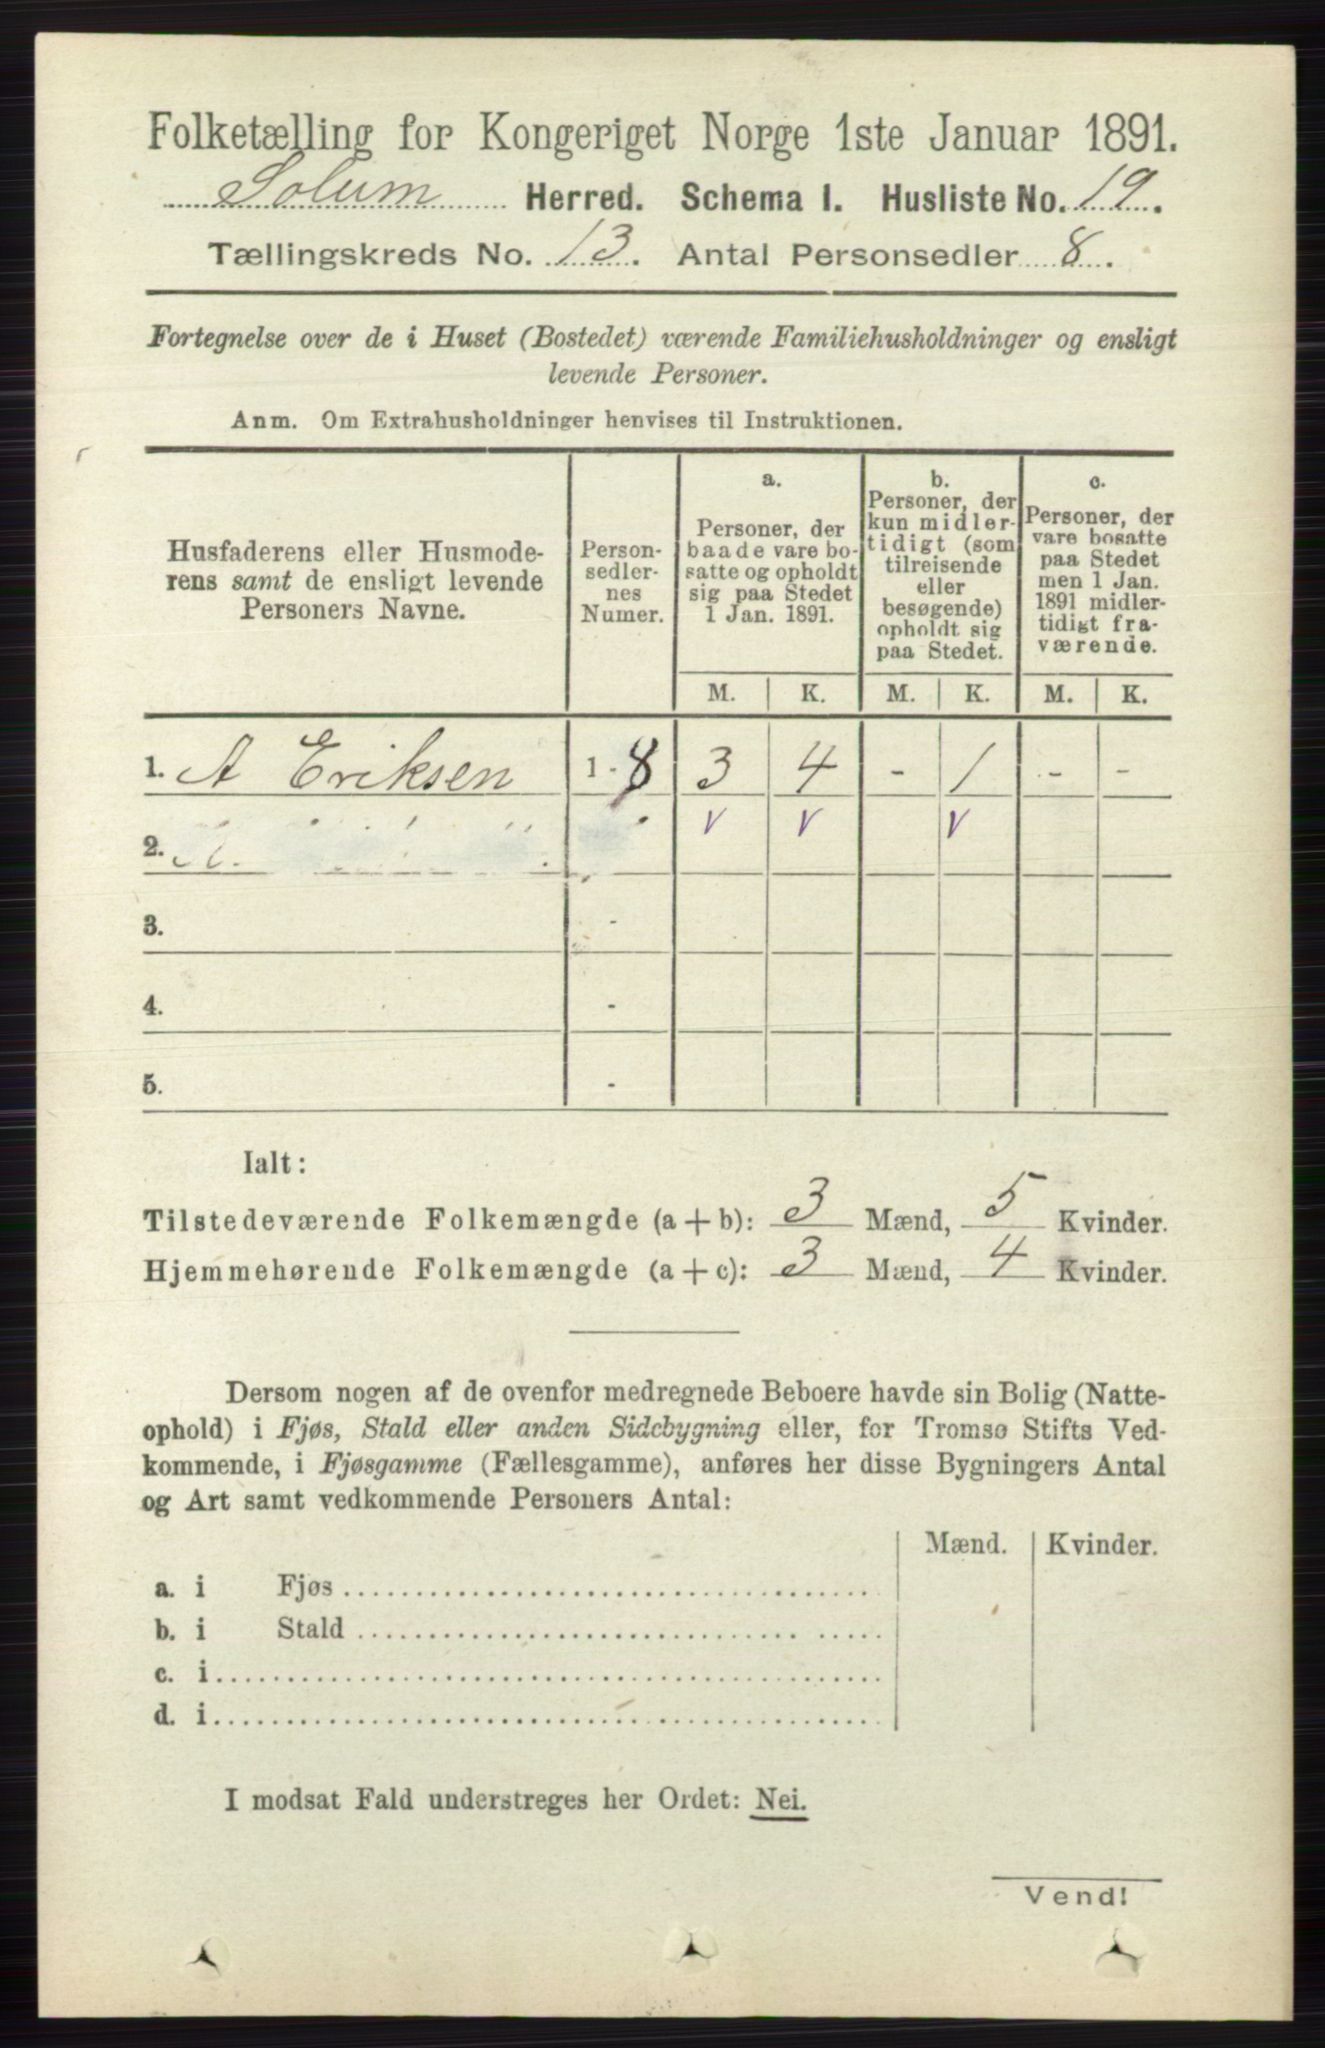 Folketælling for Kongeriget Norge 1ste Januar 1891.
Solum Herred. Schema I. Husliste No. 19.
Tællingskreds No. 13. Antal Personsedler 8.
Fortegnelse over de i Huset (Bostedet) værende Familiehusholdninger og ensligt
levende Personer.
Anm. Om Extrahusholdninger henvises til Instruktionen.
Husfaderens eller Husmode-
rens samt de ensligt levende
Personers Navne.
Person-
sedler-
nes
Numer.
a.
Personer, der
baade vare bo-
satte og opholdt
sig paa Stedet
1 Jan. 1891.
b.
Personer, der
kun midler-
tidigt (som
tilreisende
eller
besøgende)
opholdt sig
paa Stedet.
c.
Personer, der
vare bosatte
paa Stedet
men 1 Jan.
1891 midler-
tidigt fra-
værende.
M. K. M. K. M. K.
1. A Eriksen 1 - 8 3 4 - 1 - -
v v v
2.
3. -
4. -
5. -
Ialt:
Tilstedeværende Folkemængde (a + b): 3 Mænd, 5 Kvinder.
Hjemmehørende Folkemængde (a + c): 3 Mænd, 4 Kvinder.
Dersom nogen af de ovenfor medregnede Beboere havde sin Bolig (Natte-
ophold) i Fjøs, Stald eller anden Sidebygning eller, for Tromsø Stifts Ved-
kommende, i Fjøsgamme (Fællesgamme), anføres her disse Bygningers Antal
og Art samt vedkommende Personers Antal:
Mænd. Kvinder.
a. i Fjøs
b. i Stald
c. i
d. i
I modsat Fald understreges her Ordet: Nei.
Vend!